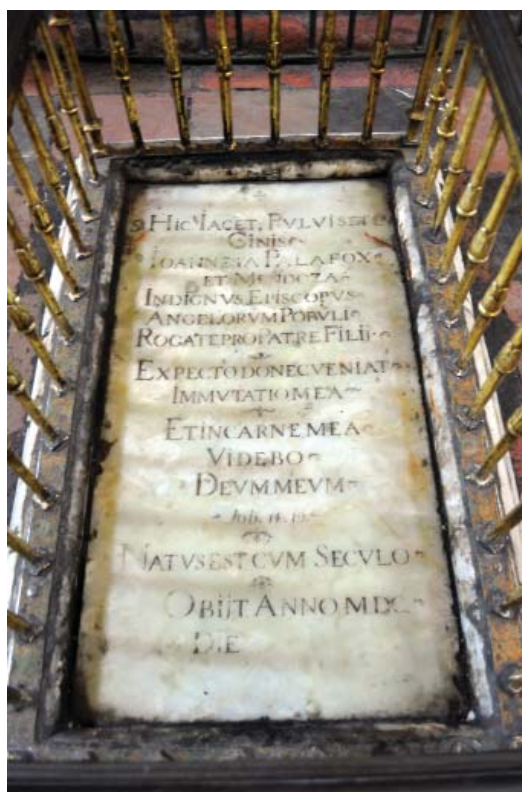 HIC IACET, PULVIS ET
CINIS
IOANNES A PALAFOX
ET MENDOZA
INDIGNVS EPISCOPVS
ANGELORVM POPVLI
ROGATE PRO PATRE FILII
EXPECTO DONEC VENIAT
IMMVTATIO MEA
ET IN CARNE MEA
VIDEBO
DEVM MEVM
Job. 14. 19.
NATVS EST CVM SECVLO
OBIJT ANNO MDC
DIE